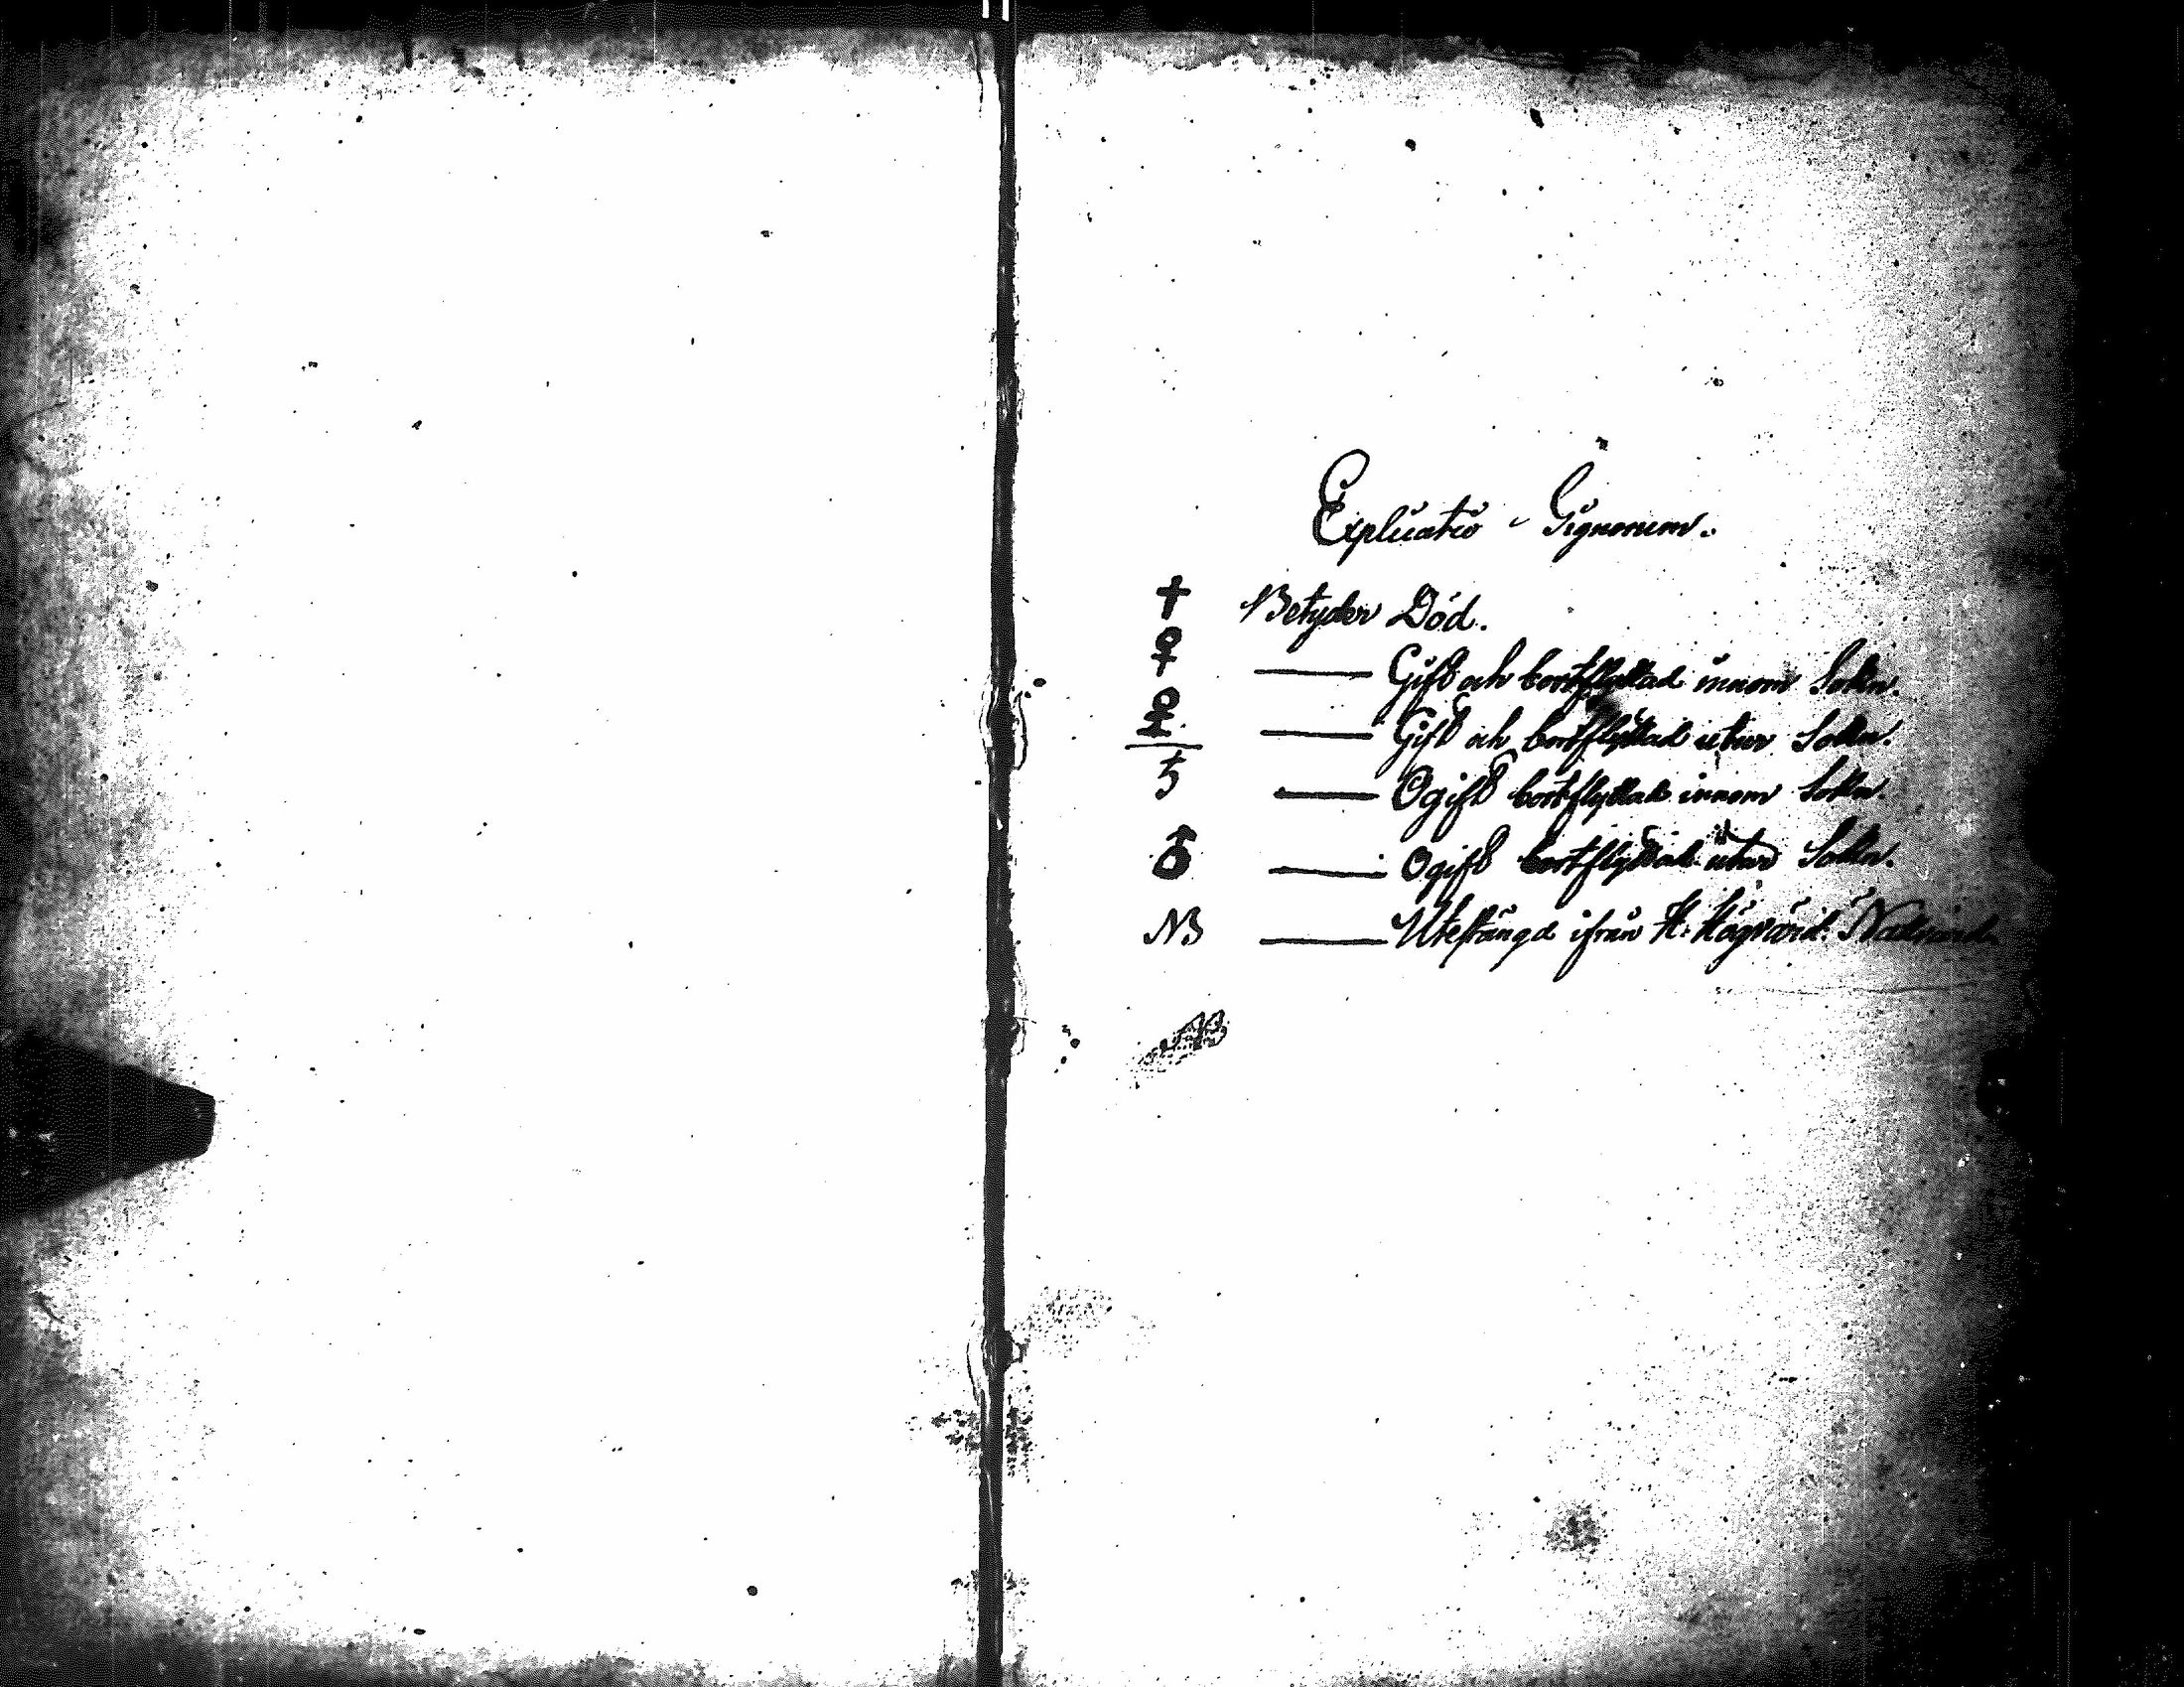 Explicatio Signorum.
† Betyder Död.
♀ — Gift och bortflyttad innom Sokn.
♀ — Gift och bortflyttad utur Sokn.
♄ — Ogift bortflyttad innom Sokn.
♁ — Ogift bortflyttad utur Sokn.
NB — Utestängd ifrån H. Högvörd. Nattvard
NB